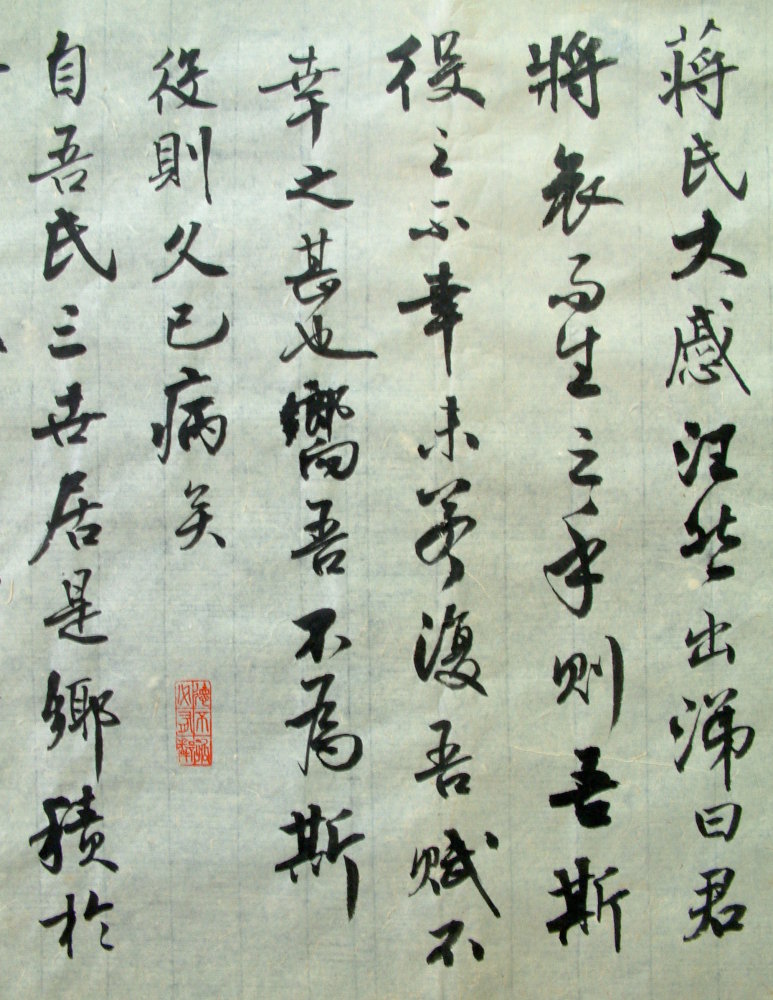 蔣氏大慼汪然出涕曰君
將哀而生之乎則吾斯
役之不幸未若復吾賦不
幸之甚也嚮吾不為斯
役則久已病矣
德不孤
必有鄰
自吾氏三世居是鄉積於